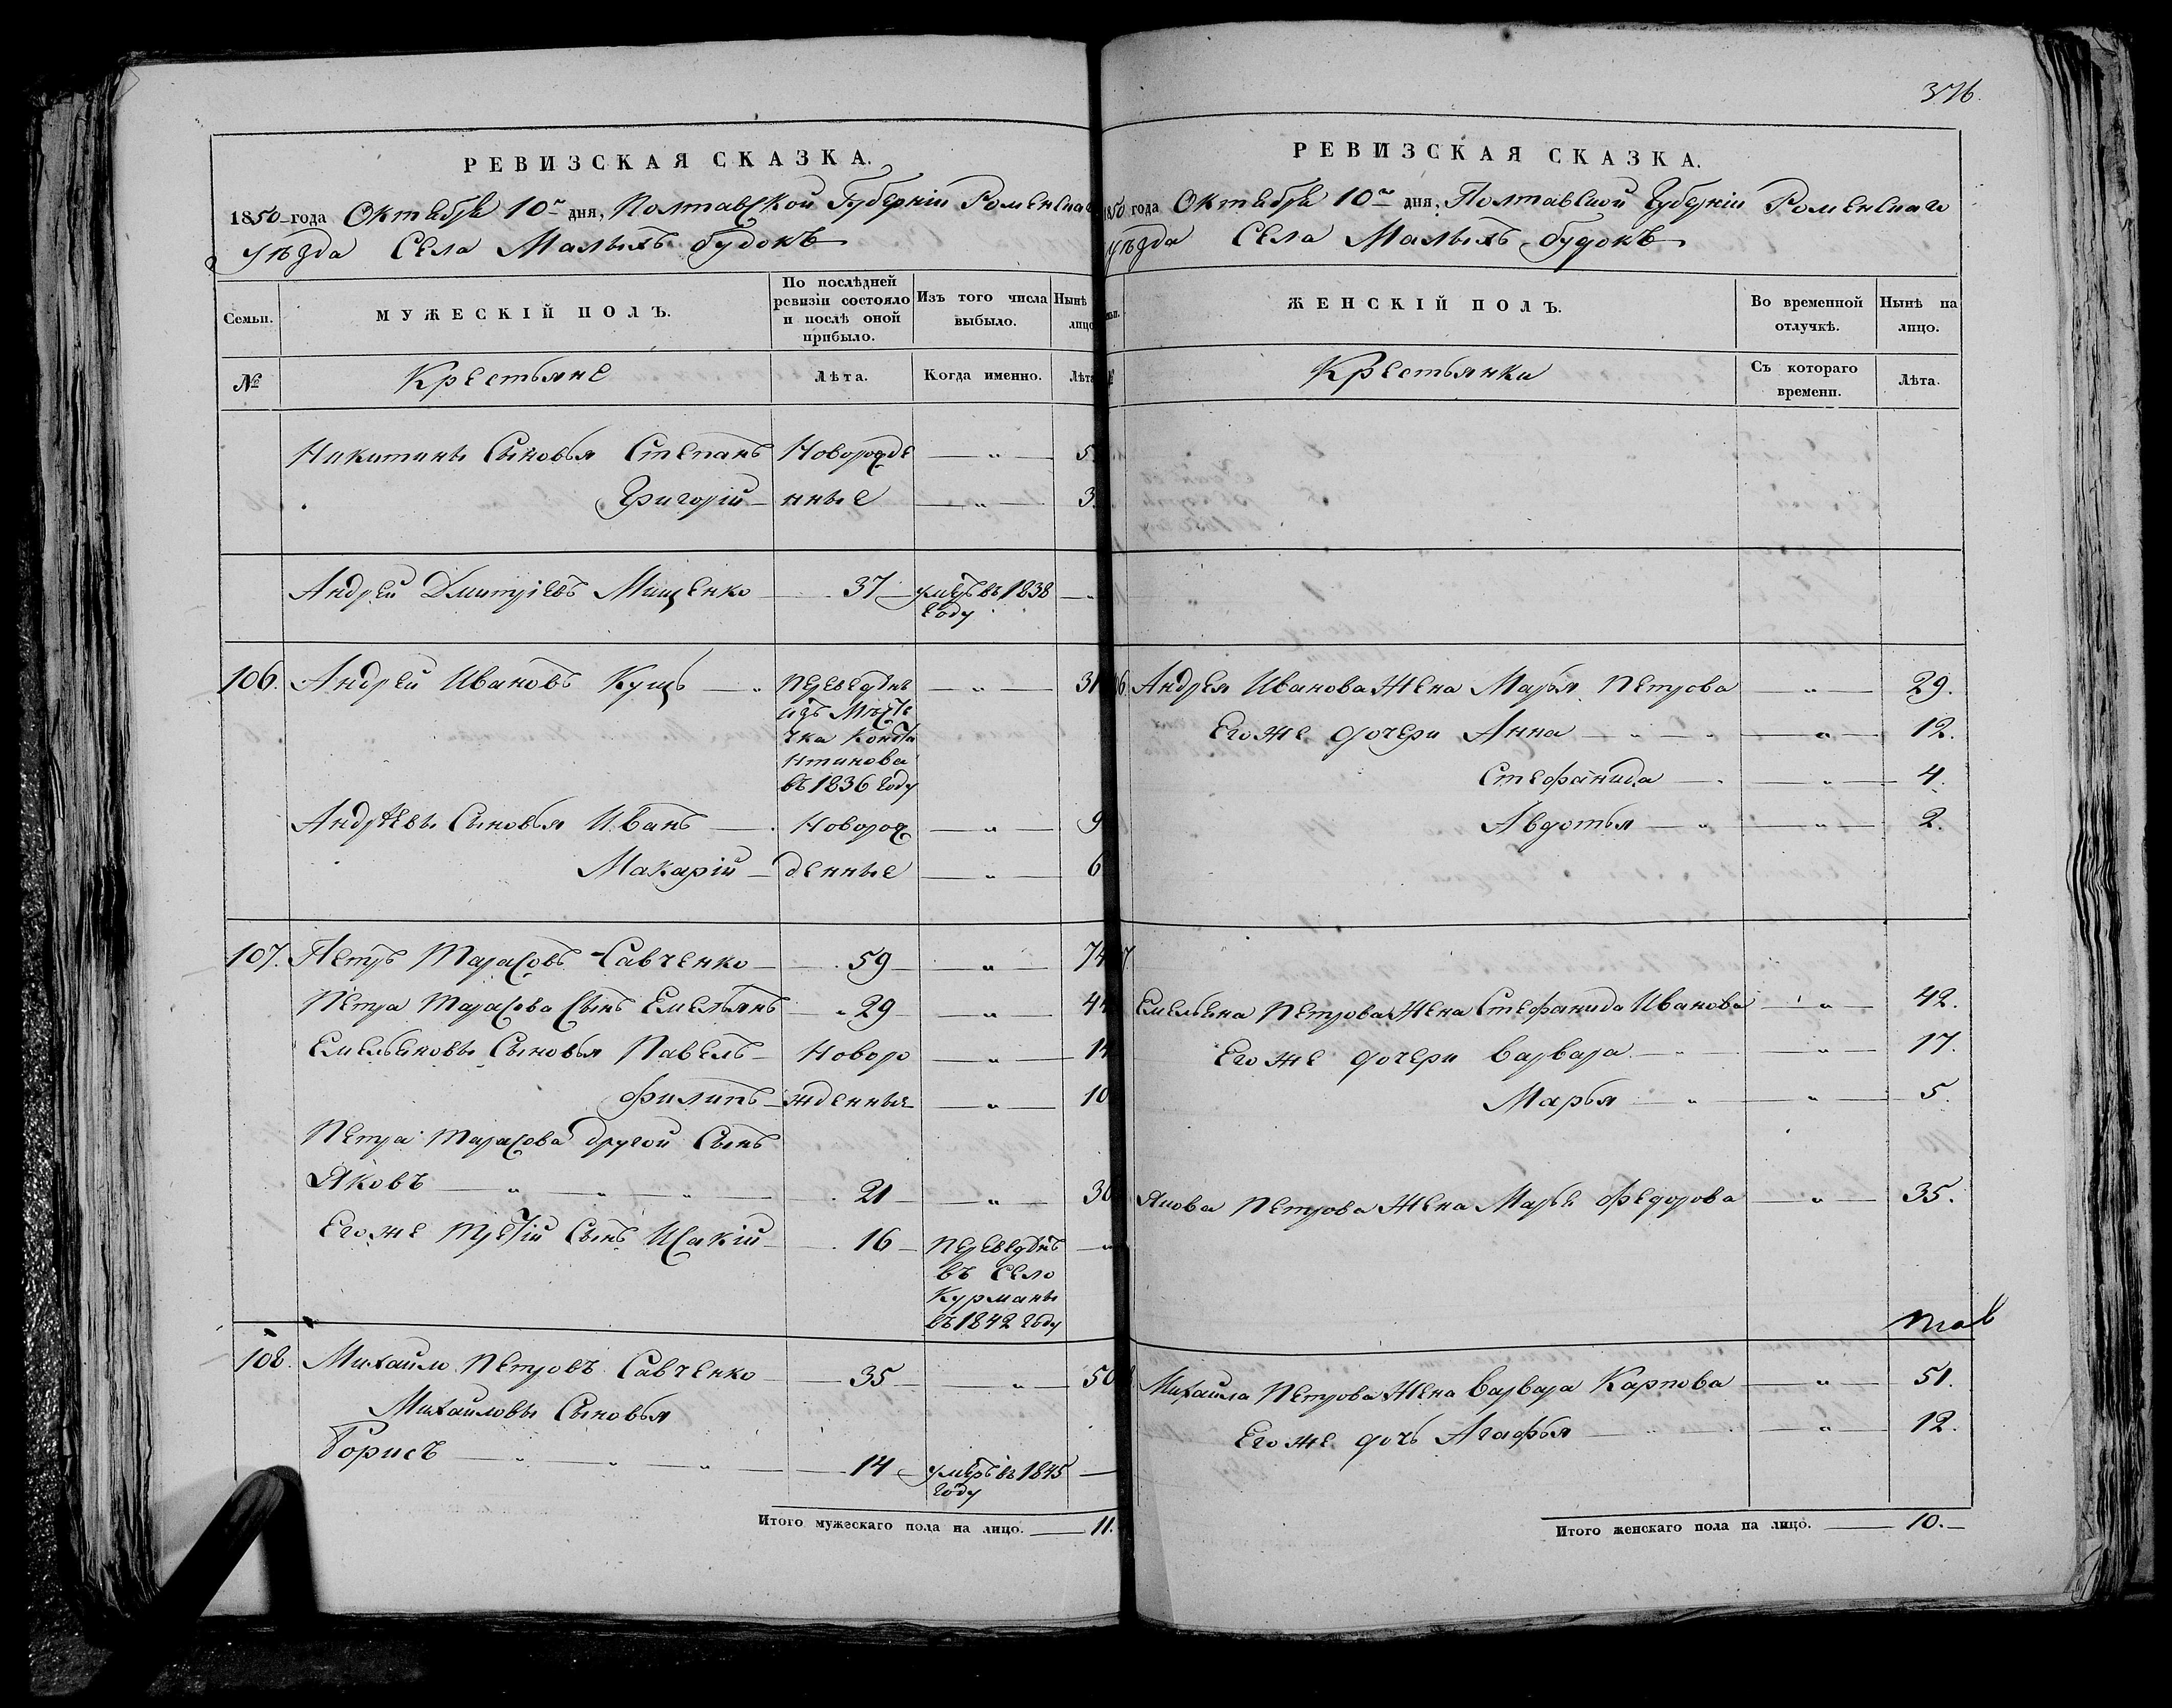 РЕВИЗСКАЯ СКАЗКА.
1850 года Октября 10го дня, Полтавской Губерніи Роменска
уѣзда Села Малыхъ будокъ
Семьи.
МУЖЕСКІЙ ПОЛЪ.
По послѣдней ревизіи состояло и послѣ оной прибыло.
Изъ того числа выбыло.
Нынѣ лицо
№
Крестьяне
Лѣта.
Когда именно.
Лѣта
Никитины Сыновья Степанъ Новорожде — „ — 5
Григорій — нные — „ — 3
Андрей Дмитріевъ Мищенко — 37 — умеръ въ 1838 — „
году
106. Андрей Ивановъ Кущъ — „ переведѣнъ — „ — 31
изъ Мѣсте
чка Конста
нтинова
въ 1836 году
Андрѣевы Сыновья Иванъ — Поворож — „ — 9
Макарій — денные — „ — 6
107. Петръ Тарасовъ Савченко — 59 — „ — 74
Петра Тарасова Сынъ Емельянъ „ 29 — „ — 44
Емельяновы Сыновья Павелъ — Новоро — „ — 14
Филипъ — жденные — „ — 10
Петра Тарасова другой Сынъ
Яковъ — „ — „ — „ — 21 — „ — 30
Его же третій Сынъ Исакій — 16 — переведѣнъ — „
въ Село
Курманы
въ 1842 году
108. Михайло Петровъ Савченко — 35 — „ — 50
Михайловы Сыновья
Борисъ — „ — „ — „ — 14 — умеръ въ 1845 —
году
Итого мужескаго пола на лицо. — 11.
376.
РЕВИЗСКАЯ СКАЗКА.
1850 года Октября 10го дня, Полтавской Губерніи Роменскаго
уѣзда Села Малыхъ будокъ
ЖЕНСКІЙ ПОЛЪ.
Во временной отлучкѣ.
Нынѣ на лицо.
Крестьянки
Съ котораго времени.
Лѣта.
6 Андрея Иванова Жена Марья Петрова — „ — 29.
Его же дочери Анна — „ — „ — „ — 12.
Стефанида — „ — 4.
Авдотья — „ — „ — 2.
7. Емельяна Петрова Жена Стефанида Иванова — „ — 42.
Его же дочери Варвара — „ — „ — 17.
Марья — „ — „ — 5.
Якова Петрова Жена Марья Федорова — „ — 35.
Михайла Петрова Жена Варвара Карпова — „ — 51.
Его же дочь Агафья — „ — „ — 12.
Итого женскаго пола на лицо. — 10. —